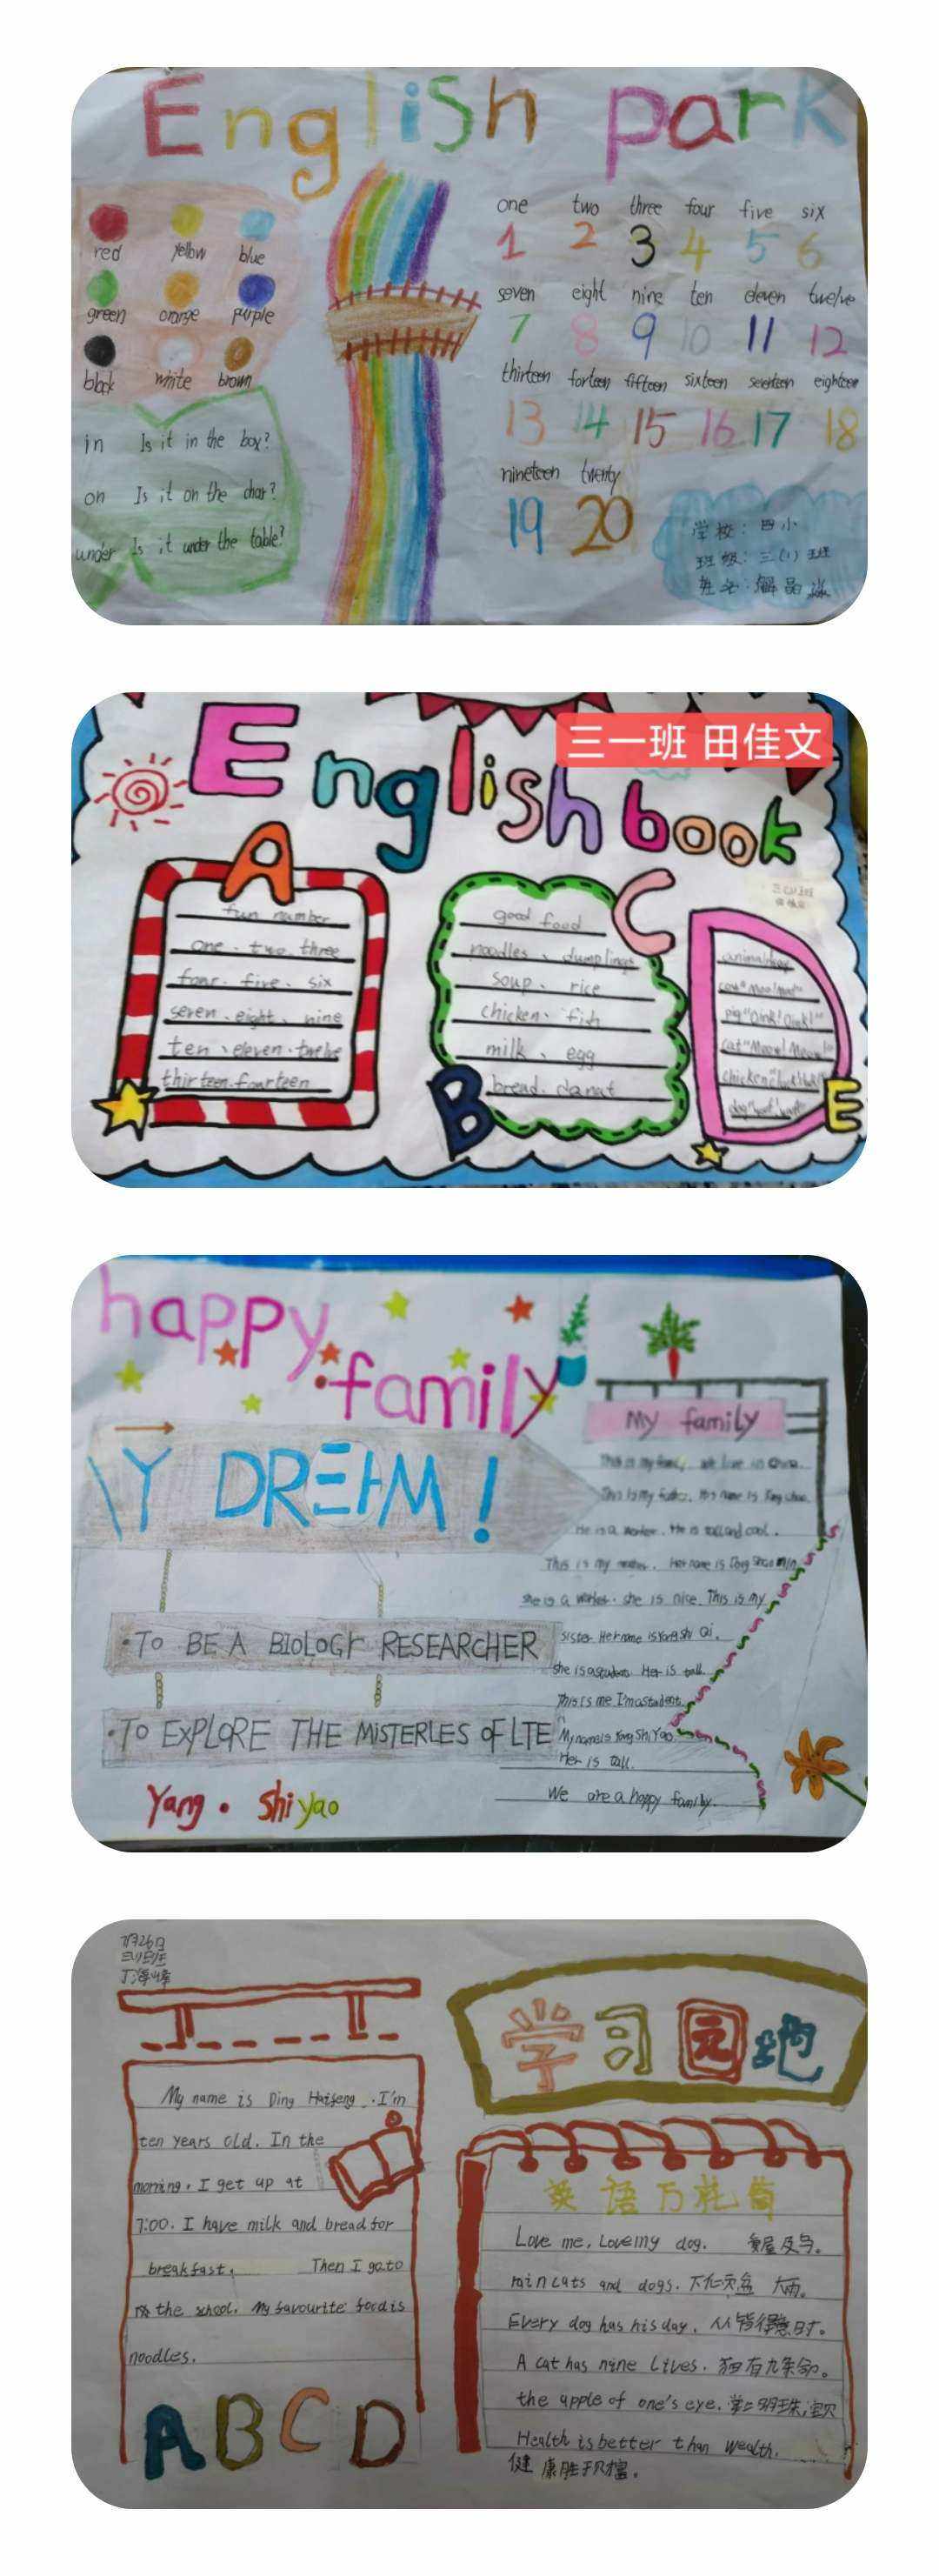 English park
red yellow blue
green orange purple
black white brown
in Is it in the box?
on Is it on the chair?
under Is it under the table?
one two three four five six
1 2 3 4 5 6
seven eight nine ten eleven twelve
7 8 9 10 11 12
thirteen forteen fifteen sixteen seventeen eighteen
13 14 15 16 17 18
nineteen twenty
19 20
学校：田小
班级：三(1)班
姓名：解晶
三一班 田佳文
English book
A
fun number
one、two、three
four、five、six
seven、eight、nine
ten、eleven、twelve
thirteen、fourteen
B
C
good food
noodles、dumplings
soup、rice
chicken、fish
milk、egg
bread、donat
D
E
pig "Oink! Oink!"
cat "Meow! Meow!"
happy
family
Y DREAM!
·TO BE A BIOLOGY RESEARCHER
·TO EXPLORE THE MISTERLES OF LTE
Yang · Shiyao
My family
This is my family, we live in
This is my father. His name is
He is a worker. He is tall and cool.
This is my mother. Her name is
she is a worker. she is nice. This is my
sister. Her name is Yang Shi Qi.
she is a student. Her is tall.
This is me I'm a student.
My name is Yang Shi Yao.
Her is tall.
We are a happy family.
7月26日
三(1)班
丁海峰
My name is Ding Haifeng. I'm
ten years old. In the
morning, I get up at
7:00. I have milk and bread for
breakfast. Then I go to
the school. My favourite food is
noodles.
ABCD
学习园地
英语万花筒
Love me, Love my dog. 爱屋及乌。
rain cats and dogs. 下倾盆大雨。
Every dog has his day. 人人皆得意时。
A cat has nine lives. 猫有九条命。
the apple of one's eye. 掌上明珠;宝贝
Health is better than wealth.
健康胜于财富。